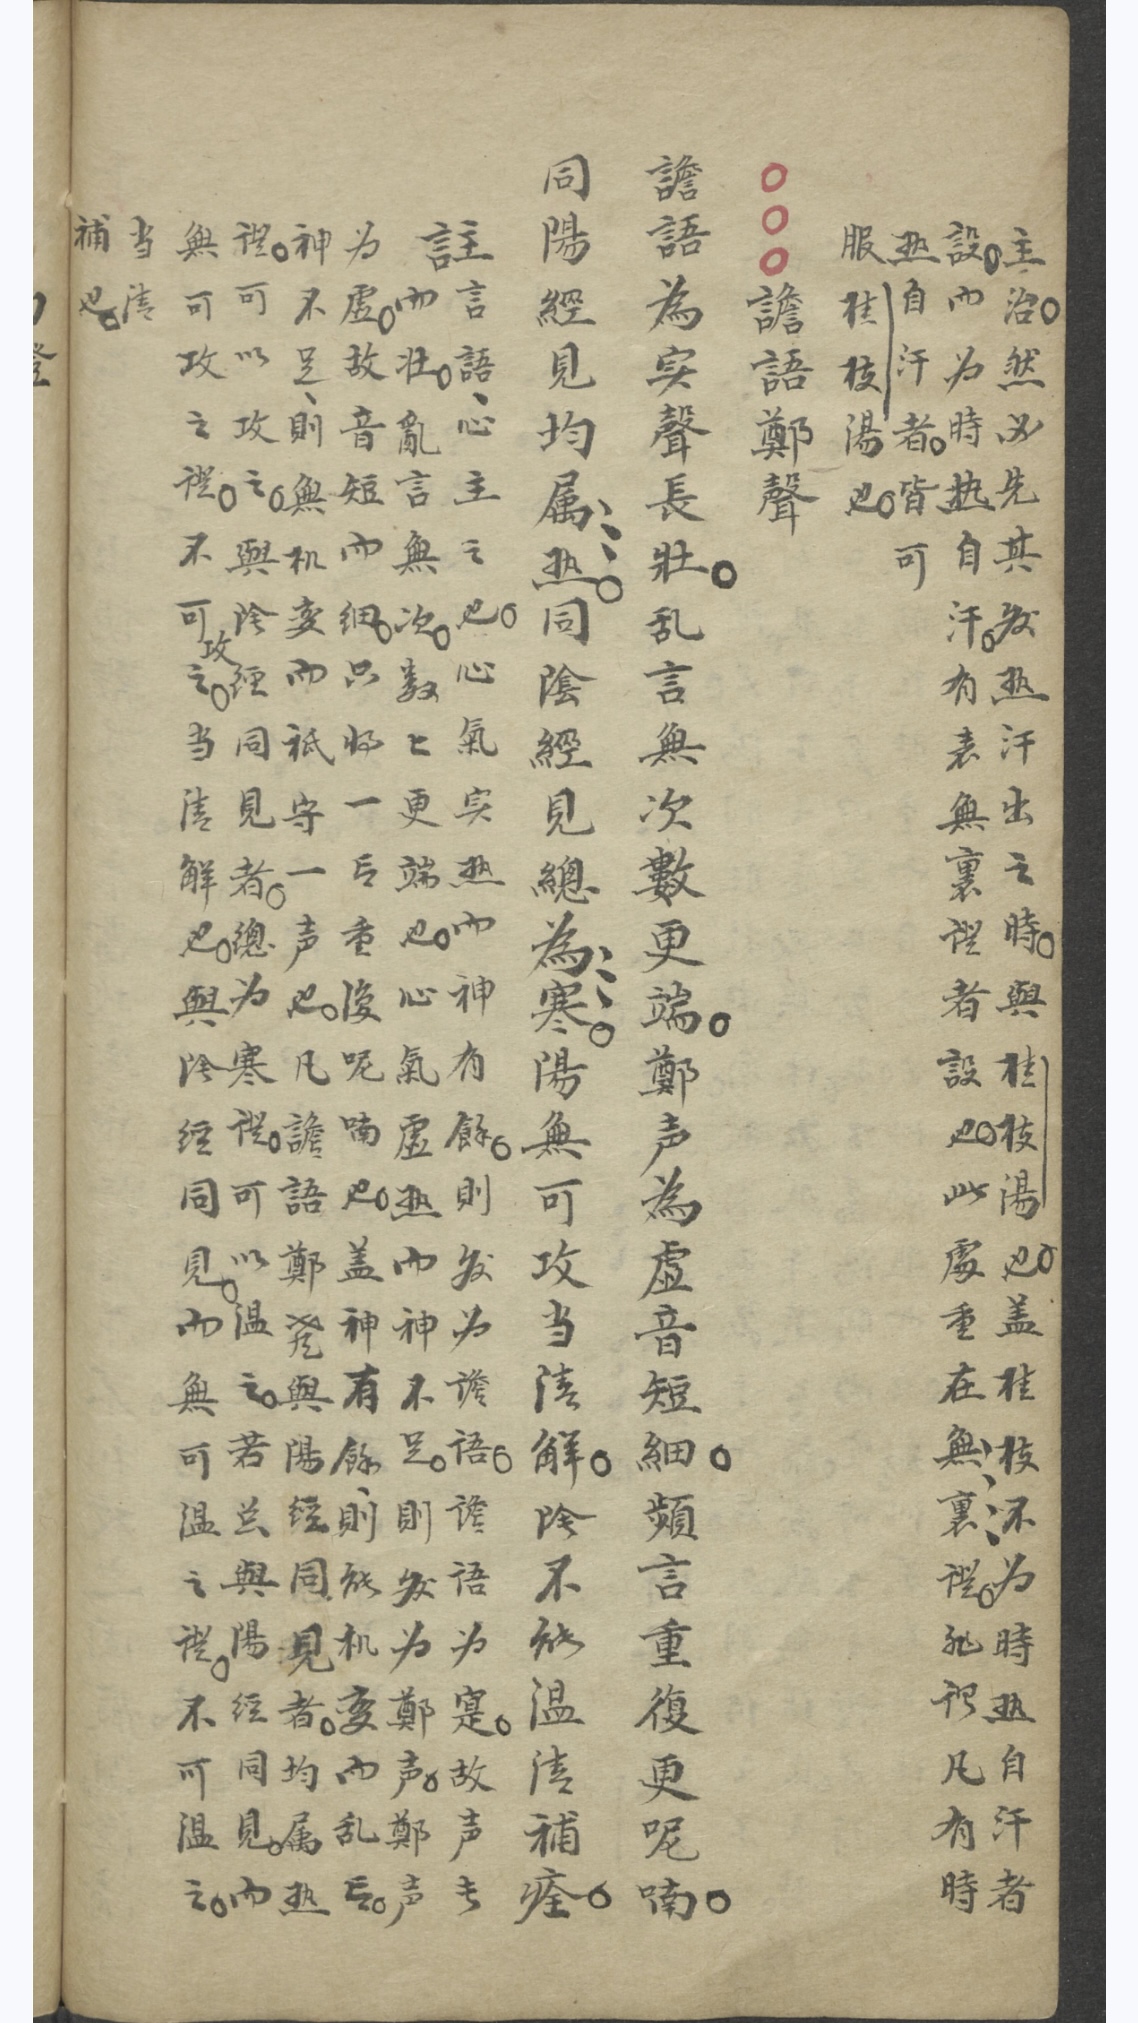 主治然必先其发热汗出之時與桂枝湯也盖桂枝不为時热自汗者
設而为時热自汗有表無裏證者設也此處重在無裏證非謂凡有時
热自汗者皆可
服桂枝湯也
譫語鄭聲
譫語為实聲長壯乱言無次數更端鄭声為虚音短細頻言重復更呢喃
同陽經見均属热同陰經見總為寒陽無可攻当清解陰不能温清補痊
註言語心主之也心氣实热而神有餘則发为譫語譫语为寔故声長
而壮亂言無次数〻更端也心氣虚热而神不足則发为鄭声鄭声
为虚故音短而細只將一言重復呢喃也盖神有餘則能机変而乱言
神不足則無机変而袛守一声也凡譫語鄭声與陽經同見者均属热
證可以攻之與陰經同見者總为寒證可以温之若总與陽經同見而
無可攻之證不可攻之当清解也與陰經同見而無可温之證不可温之
当清
補也